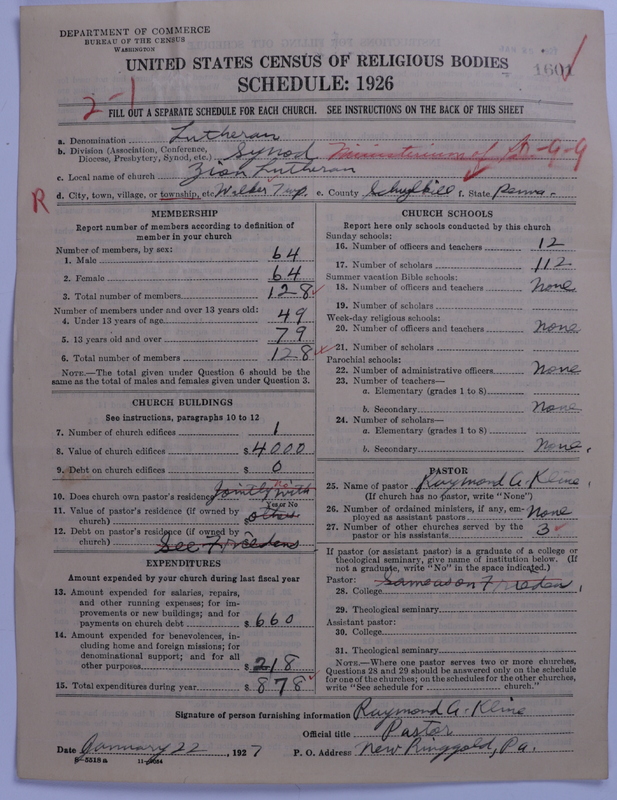 DEPARTMENT OF COMMERCE
BUREAU OF THE CENSUS
WASHINGTON
UNITED STATES CENSUS OF RELIGIOUS BODIES
1601
SCHEDULE: 1926
2-1
FILL OUT A SEPARATE SCHEDULE FOR EACH CHURCH. SEE INSTRUCTIONS ON THE BACK OF THIS SHEET
a. Denomination Lutheran
b. Division (Association, Conference, Diocese, Presbytery, Synod, etc.) Synod Ministerium of
c. Local name of church Zion Lutheran
R
d. City, town, village, or township, etc. Walker Twp. e. County Schuylkill f. State Penna.
MEMBERSHIP
Report number of members according to definition of
member in your church
Number of members, by sex:
1. Male 64
2. Female 64
3. Total number of members 128
Number of members under and over 13 years old:
4. Under 13 years of age 49
5. 13 years old and over 79
6. Total number of members 128
NOTE.—The total given under Question 6 should be the
same as the total of males and females given under Question 3.
CHURCH BUILDINGS
See instructions, paragraphs 10 to 12
7. Number of church edifices 1
8. Value of church edifices $4000
9. Debt on church edifices $ 0
10. Does church own pastor's residence Jointly with No
Yes or No
11. Value of pastor's residence (if owned by
church) $ others
12. Debt on pastor's residence (if owned by
church) See Friedens
EXPENDITURES
Amount expended by your church during last fiscal year
13. Amount expended for salaries, repairs,
and other running expenses; for im-
provements or new buildings; and for
payments on church debt $ 660
14. Amount expended for benevolences, in-
cluding home and foreign missions; for
denominational support; and for all
other purposes $ 218
15. Total expenditures during year $ 878
CHURCH SCHOOLS
Report here only schools conducted by this church
Sunday schools:
16. Number of officers and teachers 12
17. Number of scholars 112
Summer vacation Bible schools:
18. Number of officers and teachers None
19. Number of scholars
Week-day religious schools:
20. Number of officers and teachers None
21. Number of scholars
Parochial schools:
22. Number of administrative officers None
23. Number of teachers—
a. Elementary (grades 1 to 8)
b. Secondary None
24. Number of scholars—
a. Elementary (grades 1 to 8)
b. Secondary None.
PASTOR
25. Name of pastor Raymond A. Kline
(If church has no pastor, write "None")
26. Number of ordained ministers, if any, em-
ployed as assistant pastors None
27. Number of other churches served by the
pastor or his assistants 3
If pastor (or assistant pastor) is a graduate of a college or
theological seminary, give name of institution below. (If
not a graduate, write "No" in the space indicated.)
Pastor: Same as on Frieden
28. College
29. Theological seminary
Assistant pastor:
30. College
31. Theological seminary
NOTE.—Where one pastor serves two or more churches,
Questions 28 and 29 should be answered only on the schedule
for one of the churches; on the schedules for the other churches,
write "See schedule for church."
Signature of person furnishing information Raymond A. Kline
Official title Pastor
Date January 22, 1927 P. O. Address New Ringgold, Pa.
8-5518a